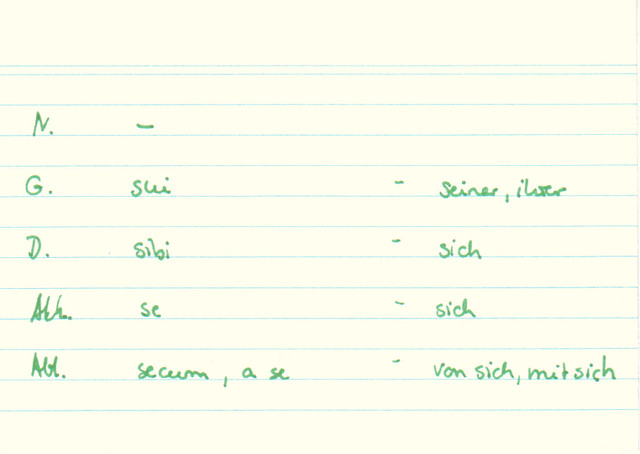 N. -
G. sui - seiner, ihrer
D. sibi - sich
Akk. se - sich
Abl. secum, a se - von sich, mit sich